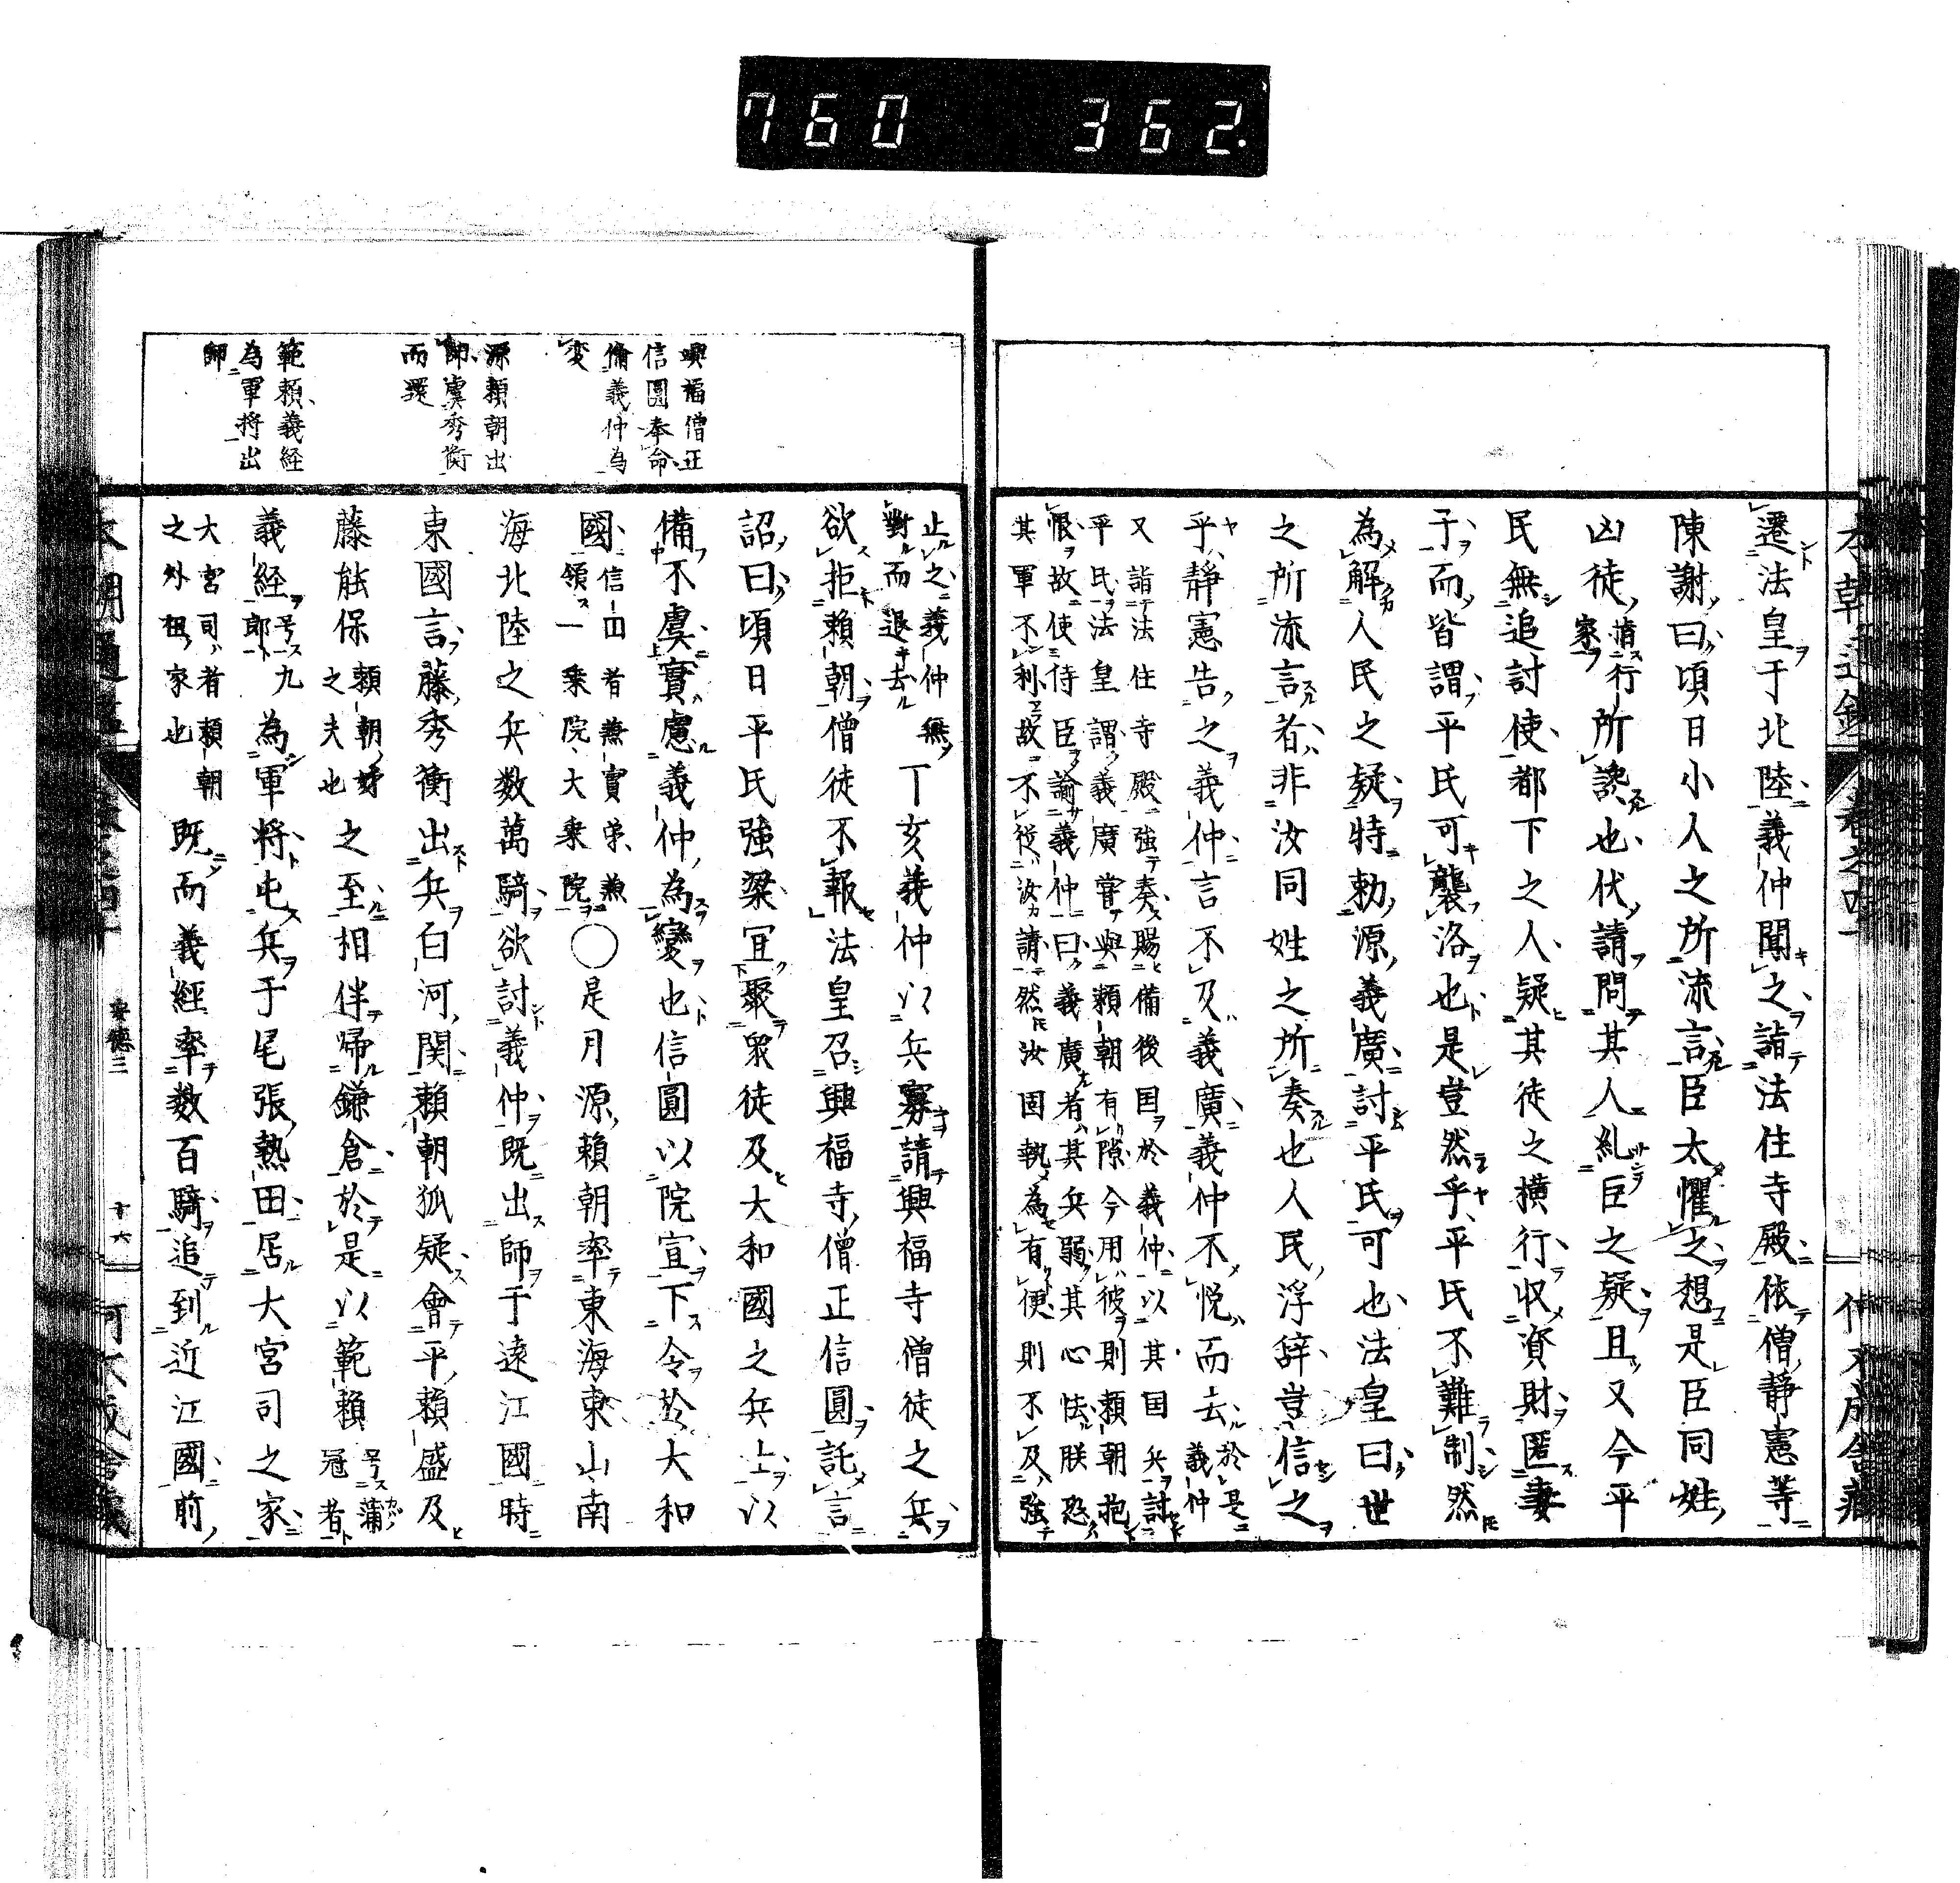 760 362.
遷法皇于北陸義仲聞之詣法住寺殿依僧靜憲等
陳謝曰頃日小人之所流言臣太懼之想是臣同姓
凶徒指行家所讒也伏請問其人糺臣之疑且又今平
民無追討使都下之人疑其徒之横行収資財匿妻
子而皆謂平氏可襲洛也是豈然乎平氏不難制然
為解人民之疑特勅源義廣討平氏可也法皇曰世
之所流言者非汝同姓之所奏也人民浮辞豈信之
乎靜憲告之義仲言不及義廣義仲不悦而去於是義仲
又詣法住寺殿強奏賜備後国於義仲以其国兵討
平民法皇謂義廣嘗與頼朝有隙今用彼則頼朝抱
恨故使侍臣諭義仲曰義廣者其兵弱其心怯朕恐
其軍不利故不從汝請然汝固執為有便則不及強
止之義仲無
對而退去丁亥義仲以兵寡請興福寺僧徒之兵
欲拒賴朝僧徒不報法皇召興福寺僧正信圓託言
詔曰頃日平氏強粱宜聚眾徒及大和國之兵上以
備不虞實慮義仲為變也信圓以院宣下令於大和
國信円者兼實弟兼領一乗院大乗院〇是月源賴朝率東海東山南
海北陸之兵数萬騎欲討義仲既出師于遠江國時
東國言藤秀衡出兵白河関賴朝狐疑會平賴盛及
藤能保頼朝妹之夫也之至相伴帰鎌倉於是以範賴号蒲冠者
義経号九郎為軍将屯兵于尾張熱田居大宮司之家
大宮司者頼朝之外祖家也既而義経率数百騎追到近江國前
興福僧正
信圓奉命
備義仲為
変
源頼朝出
師虞秀衡
而還
範頼義経
為軍将出
師
安徳三
十六